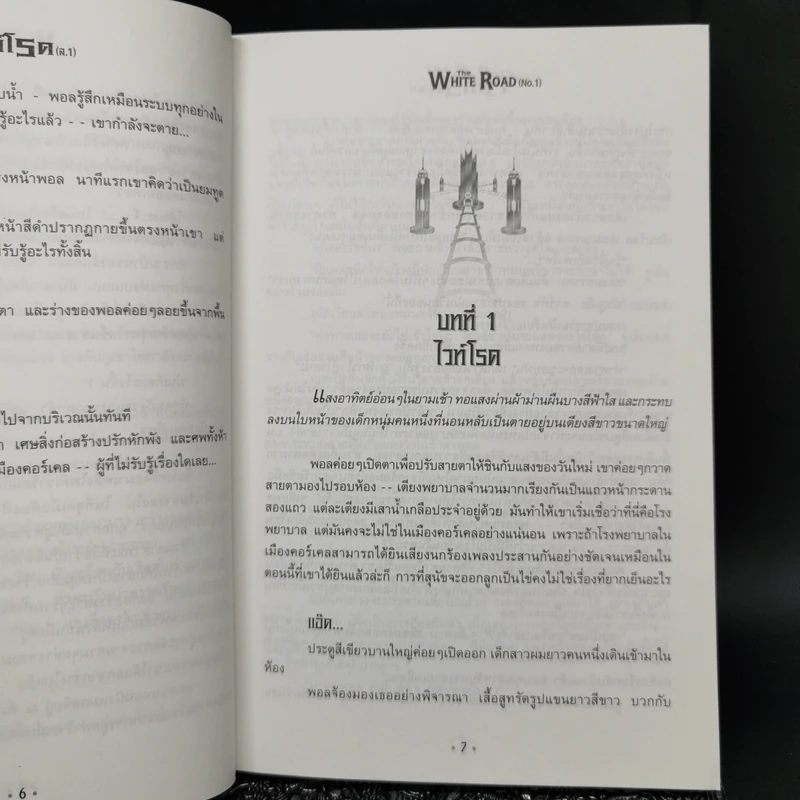 ท์โรด (ล.1)
บน้ำ - พอลรู้สึกเหมือนระบบทุกอย่างใน
รู้อะไรแล้ว - - เขากำลังจะตาย...
งหน้าพอล นาทีแรกเขาคิดว่าเป็นยมทูต
หน้าสีดำปรากฏกายขึ้นตรงหน้าเขา แต่
รับรู้อะไรทั้งสิ้น
ตา และร่างของพอลค่อยๆลอยขึ้นจากพื้น
ไปจากบริเวณนั้นทันที
า เศษสิ่งก่อสร้างปรักหักพัง และศพทั้งห้า
มืองคอร์เคล - - ผู้ที่ไม่รับรู้เรื่องใดเลย...
• 6 •
The WHITE ROAD (No.1)
บทที่ 1
ไวท์โรด
แสงอาทิตย์อ่อนๆในยามเช้า ทอแสงผ่านผ้าม่านผืนบางสีฟ้าใส และกระทบ
ลงบนใบหน้าของเด็กหนุ่มคนหนึ่งที่นอนหลับเป็นตายอยู่บนเตียงสีขาวขนาดใหญ่
พอลค่อยๆเปิดตาเพื่อปรับสายตาให้ชินกับแสงของวันใหม่ เขาค่อยๆกวาด
สายตามองไปรอบห้อง - - เตียงพยาบาลจำนวนมากเรียงกันเป็นแถวหน้ากระดาน
สองแถว แต่ละเตียงมีเสาน้ำเกลือประจำอยู่ด้วย มันทำให้เขาเริ่มเชื่อว่าที่นี่คือโรง
พยาบาล แต่มันคงจะไม่ใช่ในเมืองคอร์เคลอย่างแน่นอน เพราะถ้าโรงพยาบาลใน
เมืองคอร์เคลสามารถได้ยินเสียงนกร้องเพลงประสานกันอย่างชัดเจนเหมือนใน
ตอนนี้ที่เขาได้ยินแล้วล่ะก็ การที่สุนัขจะออกลูกเป็นไข่คงไม่ใช่เรื่องที่ยากเย็นอะไร
แอ๊ด...
ประตูสีเขียวบานใหญ่ค่อยๆเปิดออก เด็กสาวผมยาวคนหนึ่งเดินเข้ามาใน
ห้อง
พอลจ้องมองเธออย่างพิจารณา เสื้อสูทรัดรูปแขนยาวสีขาว บวกกับ
• 7 •